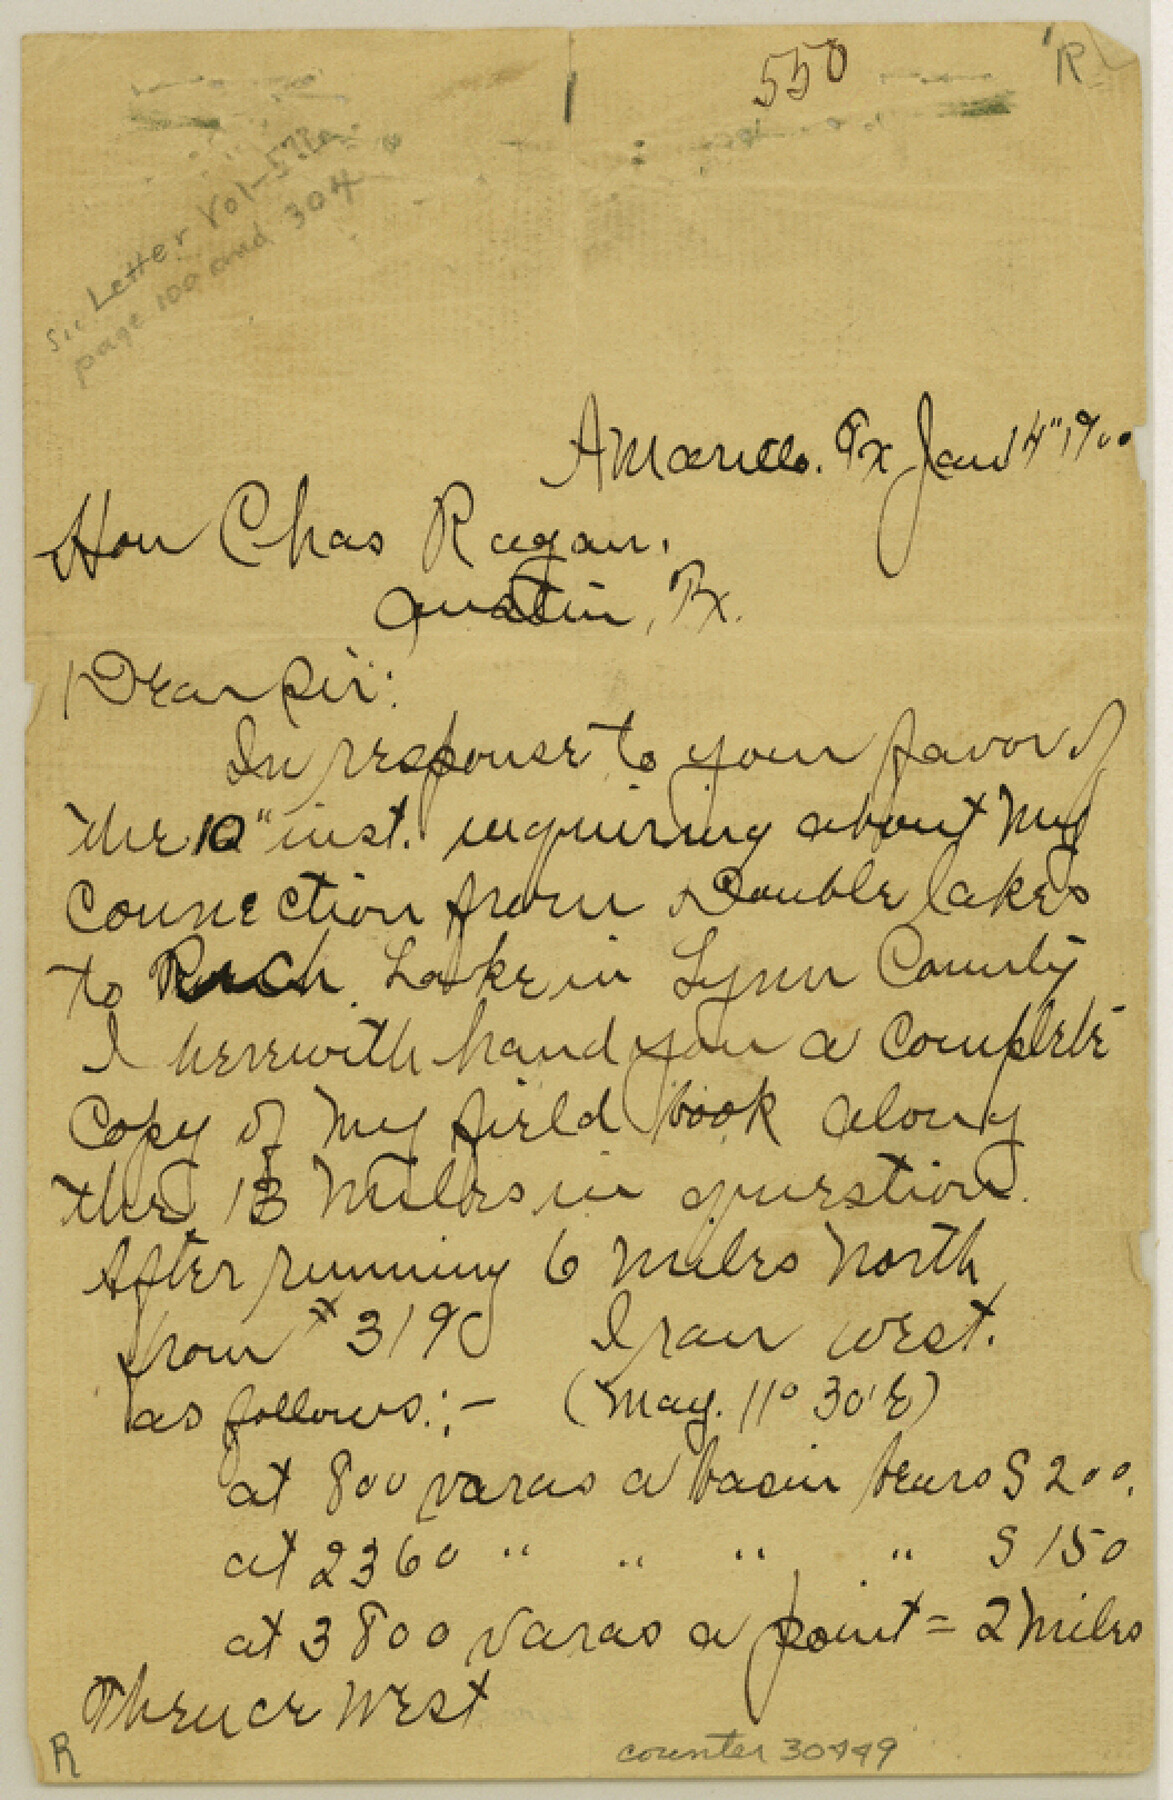 550
R
Letter Vol-
page 100 and 304
Amarillo. Tx Jan 14" 1900
Hon Chas Rogan.
Austin, Tx.
Dear Sir:
In response to your favor of
the 10" inst. inquiring about my
connection from Double lakes
to Rich Lake in Lynn County
I herewith hand you a complete
Copy of my field book along
the 13 miles in question.
After running 6 miles North
from # 319 I ran west.
as follows:- (Mag. 11° 30' E)
at 800 varas a basin bears S 200.
at 2360 " " " " S 150
at 3800 varas a point = 2 miles
Thence West
R
counter 30449